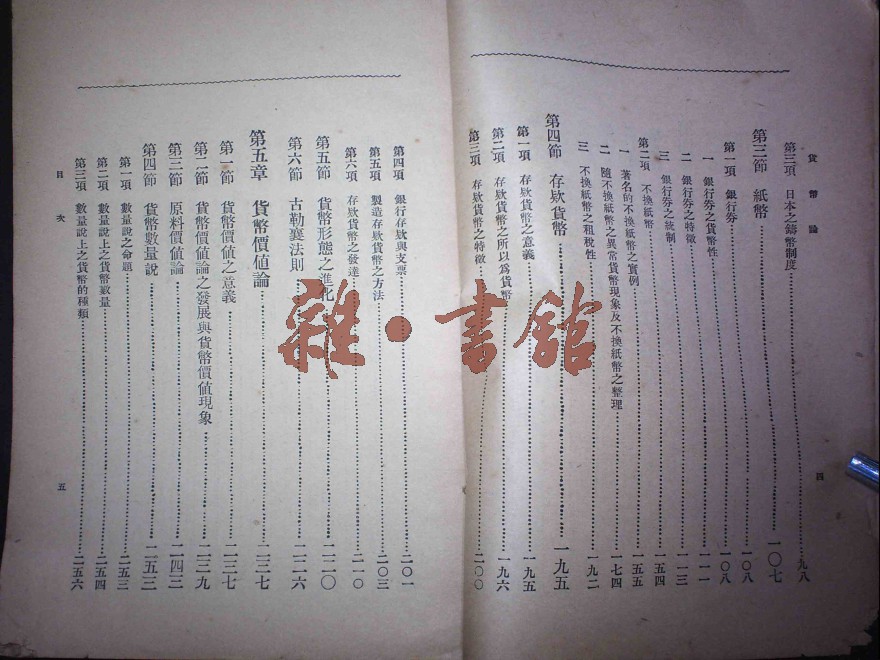 貨幣論
第三項 日本之鑄幣制度 九八
第三節 紙幣 一〇七
第一項 銀行券 一〇八
一 銀行券之貨幣性 一〇八
二 銀行券之特徵 一一一
三 銀行券之統制 一一三
第二項 不換紙幣 一五四
一 著名的不換紙幣之實例 一五五
二 隨不換紙幣之異常貨幣現象及不換紙幣之整理 一七四
三 不換紙幣之租稅性 一九二
第四節 存欵貨幣 一九五
第一項 存欵貨幣之意義 一九五
第二項 存欵貨幣之所以爲貨幣 一九六
第三項 存欵貨幣之特徵 二〇〇
四
第四項 銀行存欵與支票 二〇一
第五項 製造存欵貨幣之方法 二〇三
第六項 存欵貨幣之發達 二一〇
第五節 貨幣形態之進化 二二〇
第六節 古勒襄法則 二二六
第五章 貨幣價值論 二三七
第一節 貨幣價值之意義 二三七
第二節 貨幣價值論之發展與貨幣價值現象 二三九
第三節 原料價值論 二四三
第四節 貨幣數量說 二五三
第一項 數量說之命題 二五三
第二項 數量說上之貨幣數量 二五四
第三項 數量說上之貨幣的種類 二五六
目次
五
雜·書館